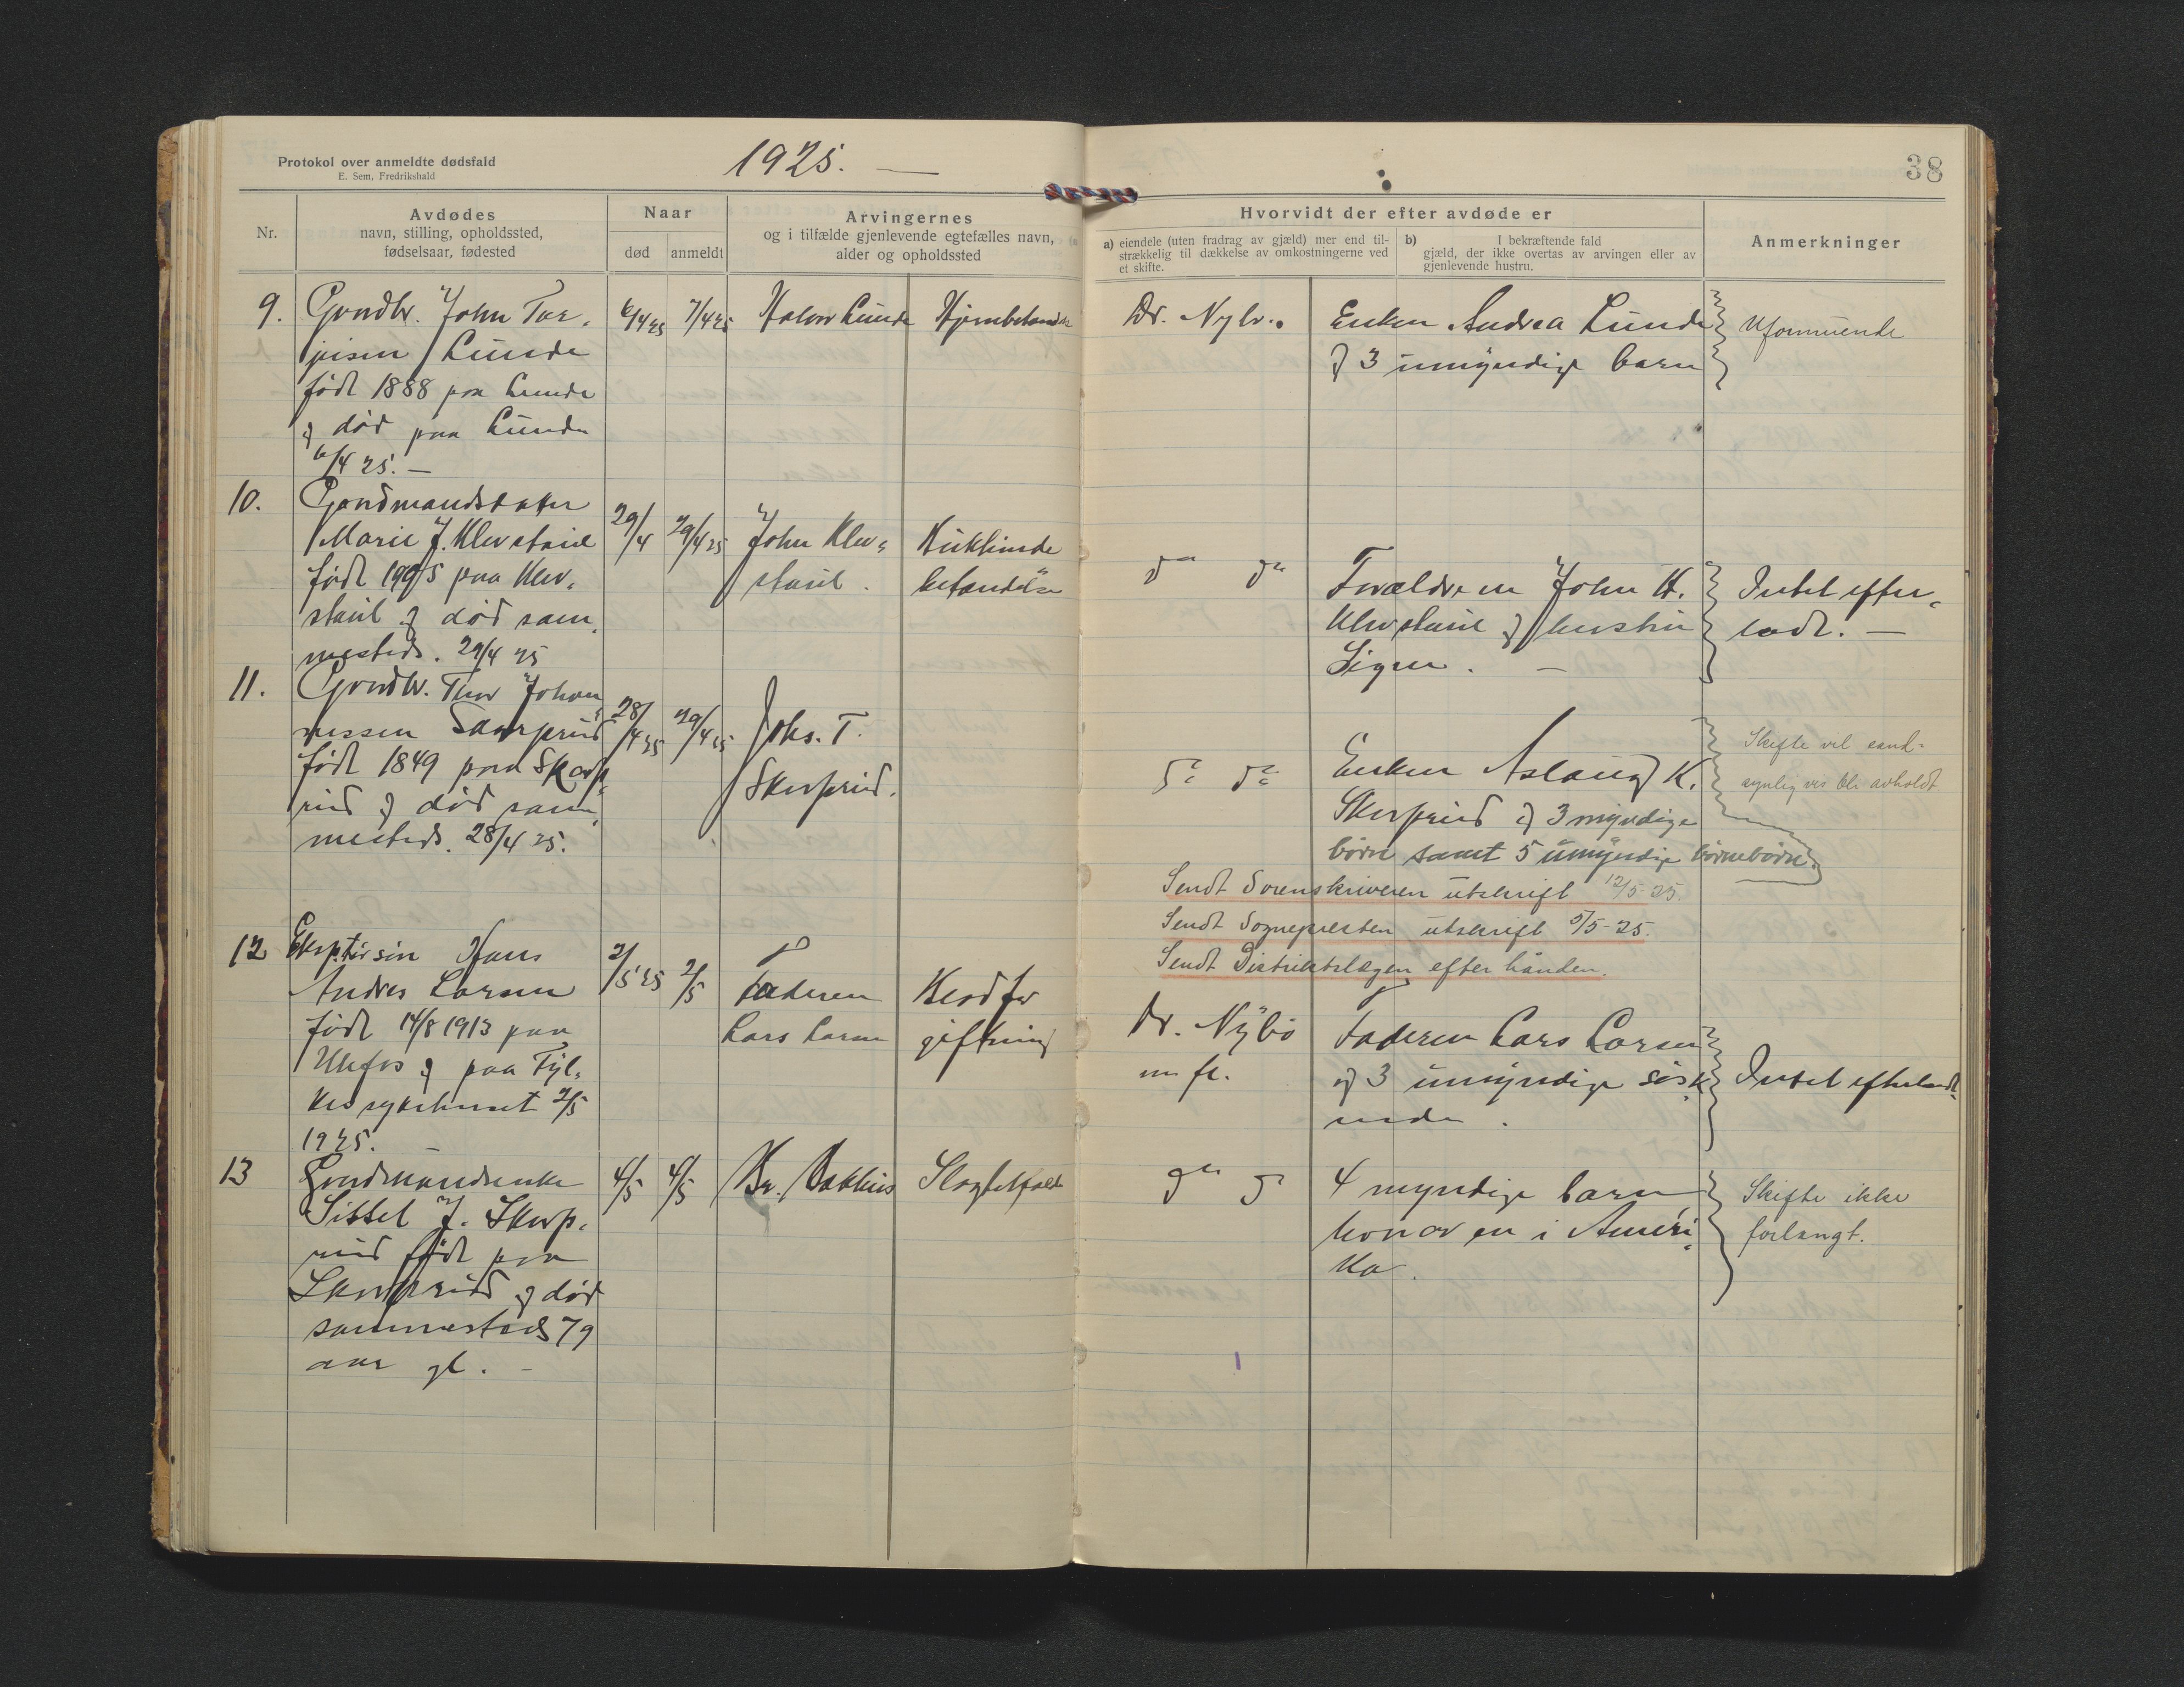 Protokol over anmeldte dødsfald
E. Sem, Fredrikshald
1925. —
38
Nr.
Avdødes
navn, stilling, opholdssted,
fødselsaar, fødested
Naar
død
anmeldt
Arvingernes
og i tilfælde gjenlevende egtefælles navn,
alder og opholdssted
Hvorvidt der efter avdøde er
a) eiendele (uten fradrag av gjæld) mer end til-
strækkelig til dækkelse av omkostningerne ved
et skifte.
b) I bekræftende fald
gjæld, der ikke overtas av arvingen eller av
gjenlevende hustru.
Anmerkninger
9.
Gaardbr. John Tar-
jeisen Lunde
født 1888 paa Lunde
og død paa Lunde
6/4 25. —
6/4 25
7/4 25
Halvor Lunde
Dr. Nybø.
Enken Andrea Lunde
og 3 umyndige barn
Uformuende
10.
Gaardmandsdatter
Marie J. Klevstaul
født 1905 paa Klev-
staul og død sam-
mesteds. 29/4 25
29/4
29/4 25
John Klev-
staul.
betændelse
do do
Forældrene John H.
Klevstaul og hustru
Signe. —
Intet efter-
ladt. —
11.
Gaardbr. Thor Johan
nessen Skarprud
født 1849 paa Skarp
rud og død sam-
mesteds. 28/4 25.
28/4 25
29/4 25
Johs. T.
Skarprud.
do do
Enken Aslaug K.
Skarprud og 3 myndige
børn samt 5 umyndige børnebørn.
Skifte vil sand-
synligvis bli avholdt
Sendt Sorenskriveren utskrift 12/5-25.
Sendt Sognepresten utskrift 5/5-25.
Sendt Distriktslægen efter hånden.
12
Eksp.tør sön Hans
Andres Larsen
født 14/8 1913 paa
Ulefos og paa Fyl-
kessykehuset 2/5
1925.
2/5 25
2/5
Faderen
Lars Larsen
Blodfor
giftning
Dr. Nybø
m fl.
Faderen Lars Larsen
og 3 umyndige søsk-
ende.
Intet efterladt.
13
Gaardmandsenke
Sissel J. Skarp-
rud født paa
Skarprud og død
sammesteds 79
aar gl. —
4/5
4/5
Kr. Bakkhus
Slagtilfælde
do do
4 myndige barn
hvorav en i Ameri-
ka.
Skifte ikke
forlangt.